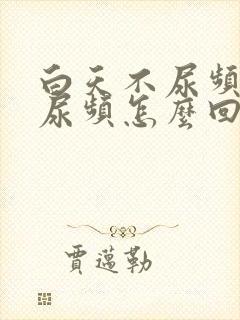 白天不尿頻
尿頻怎麼回
賈邁勒